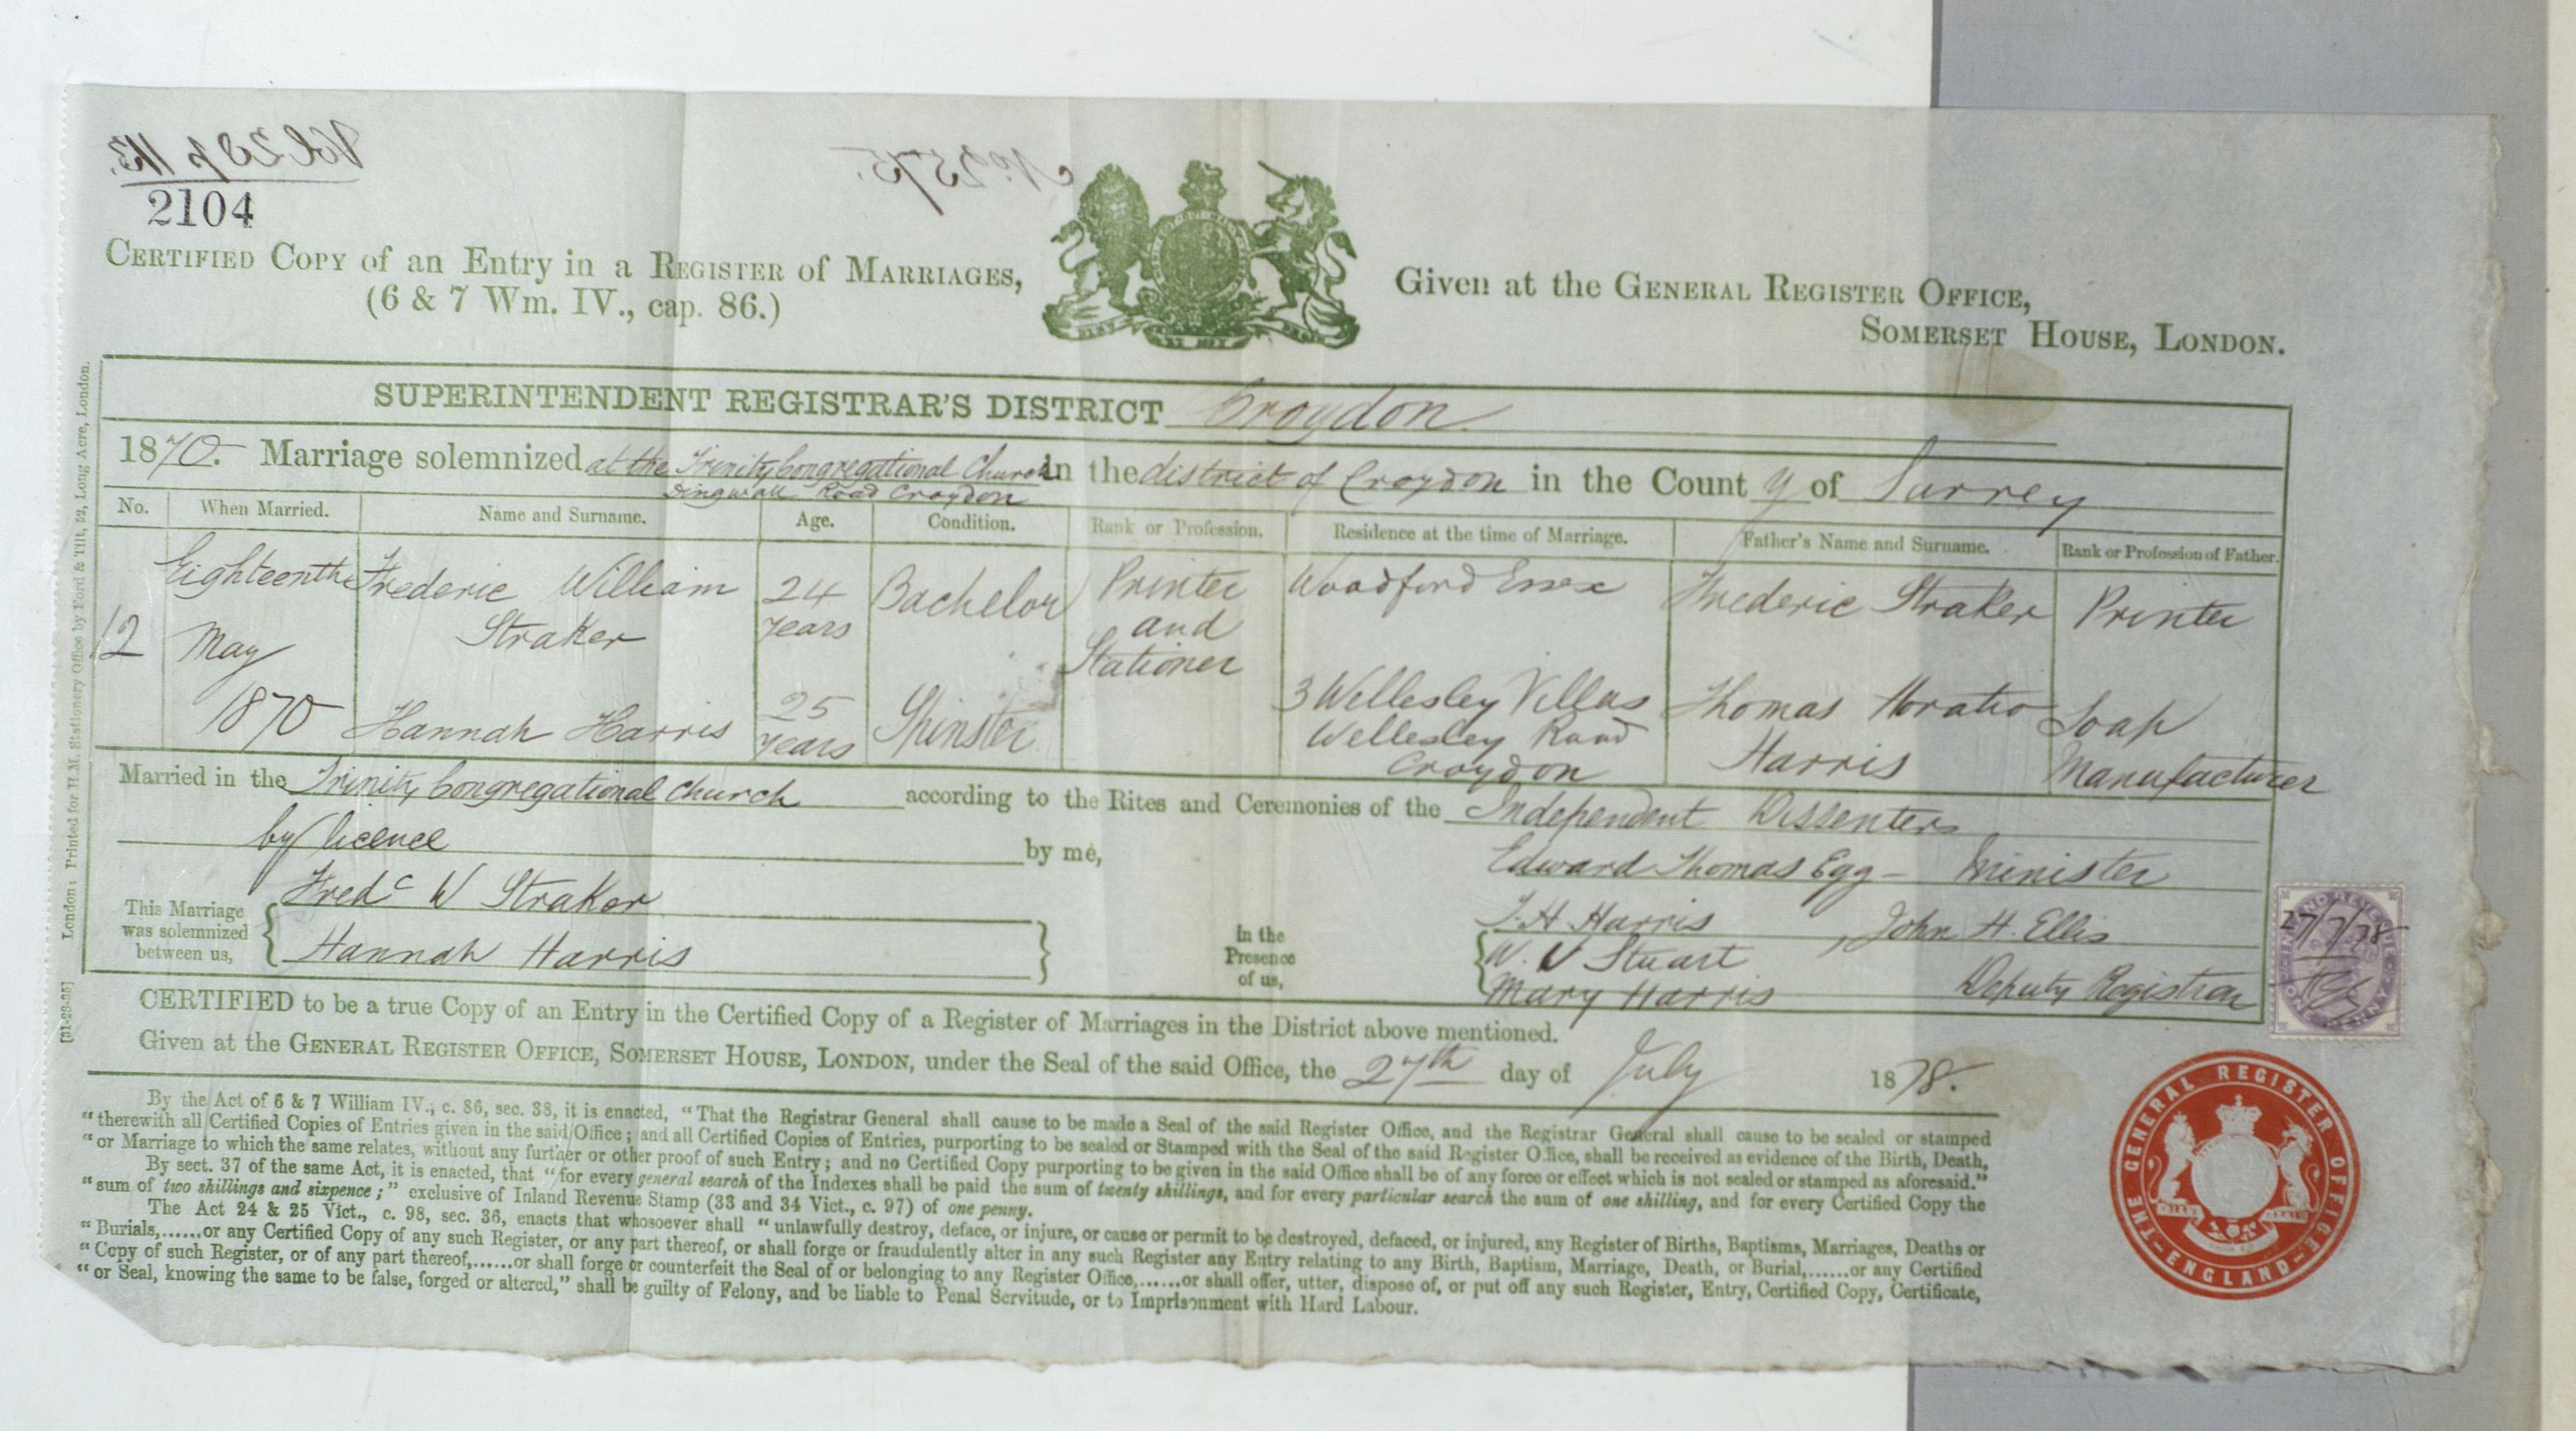 Vol 23 p 113.
No 2575.
2104
CERTIFIED COPY of an Entry in a REGISTER of MARRIAGES,
(6 & 7 Wm. IV., cap. 86.)
Given at the GENERAL REGISTER OFFICE,
SOMERSET HOUSE, LONDON.
SUPERINTENDENT REGISTRAR'S DISTRICT Croydon
1870. Marriage solemnized at the Trinity Congregational Church in the district of Croydon in the County of Surrey
Dingwall Road Croydon
No. When Married. Name and Surname. Age. Condition. Rank or Profession. Residence at the time of Marriage. Father's Name and Surname. Rank or Profession of Father.
12 Eighteenth May 1870 Frederic William Straker 24 years Bachelor Printer and Stationer Woodford Essex Frederic Straker Printer
Hannah Harris 25 years Spinster 3 Wellesley Villas Wellesley Road Croydon Thomas Horatio Harris Soap Manufacturer
Married in the Trinity Congregational Church according to the Rites and Ceremonies of the Independent Dissenters
by licence by me,
Edward Thomas Egg - Minister
This Marriage was solemnized between us,
Fredc W Straker
Hannah Harris
in the Presence of us,
T. H. Harris
W. V Stuart
Mary Harris
John H. Ellis
Deputy Registrar
CERTIFIED to be a true Copy of an Entry in the Certified Copy of a Register of Marriages in the District above mentioned.
Given at the GENERAL REGISTER OFFICE, SOMERSET HOUSE, LONDON, under the Seal of the said Office, the 27th day of July 1878.
By the Act of 6 & 7 William IV., c. 86, sec. 38, it is enacted, "That the Registrar General shall cause to be made a Seal of the said Register Office, and the Registrar General shall cause to be sealed or stamped
"therewith all Certified Copies of Entries given in the said Office; and all Certified Copies of Entries, purporting to be sealed or Stamped with the Seal of the said Register Office, shall be received as evidence of the Birth, Death,
"or Marriage to which the same relates, without any further or other proof of such Entry; and no Certified Copy purporting to be given in the said Office shall be of any force or effect which is not sealed or stamped as aforesaid."
By sect. 37 of the same Act, it is enacted, that "for every general search of the Indexes shall be paid the sum of twenty shillings, and for every particular search the sum of one shilling, and for every Certified Copy the
"sum of two shillings and sixpence;" exclusive of Inland Revenue Stamp (33 and 34 Vict., c. 97) of one penny.
The Act 24 & 25 Vict., c. 98, sec. 36, enacts that whosoever shall "unlawfully destroy, deface, or injure, or cause or permit to be destroyed, defaced, or injured, any Register of Births, Baptisms, Marriages, Deaths or
"Burials,......or any Certified Copy of any such Register, or any part thereof, or shall forge or fraudulently alter in any such Register any Entry relating to any Birth, Baptism, Marriage, Death, or Burial,......or any Certified
"Copy of such Register, or of any part thereof,......or shall forge or counterfeit the Seal of or belonging to any Register Office,......or shall offer, utter, dispose of, or put off any such Register, Entry, Certified Copy, Certificate,
"or Seal, knowing the same to be false, forged or altered," shall be guilty of Felony, and be liable to Penal Servitude, or to Imprisonment with Hard Labour.
London: Printed for H.M. Stationery Office by Ford & Tilt, 52, Long Acre, London.
INLAND REVENUE
27/7/78
ONE PENNY
THE GENERAL REGISTER OFFICE
ENGLAND